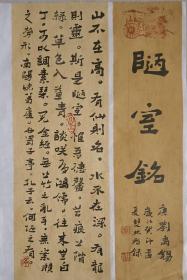 陋室銘
唐劉禹錫
山不在高。有仙則名。水不在深。有龍
則靈。斯是陋室。惟吾德馨。苔痕上階
綠。草色入簾青。談笑有鴻儒。往來無白
丁。可以調素琴。閱金經。無絲竹之亂耳。無案牘
之勞形。南陽諸葛廬。西蜀子雲亭。孔子云何陋之有